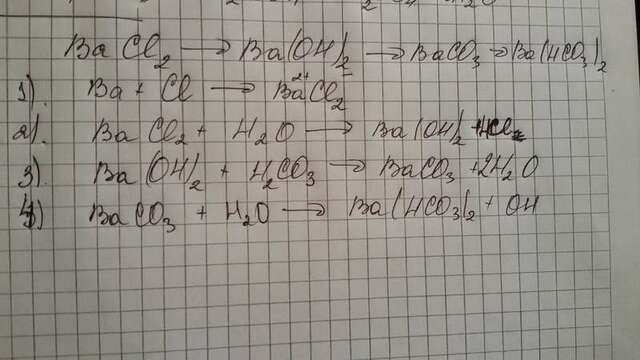 BaCl₂ → Ba(OH)₂ → BaCO₃ → Ba(HCO₃)₂
1). Ba + Cl → Ba²⁺Cl₂
2). BaCl₂ + H₂O → Ba(OH)₂ + HCl₂
3). Ba(OH)₂ + H₂CO₃ → BaCO₃ + 2H₂O
4) BaCO₃ + H₂O → Ba(HCO₃)₂ + OH